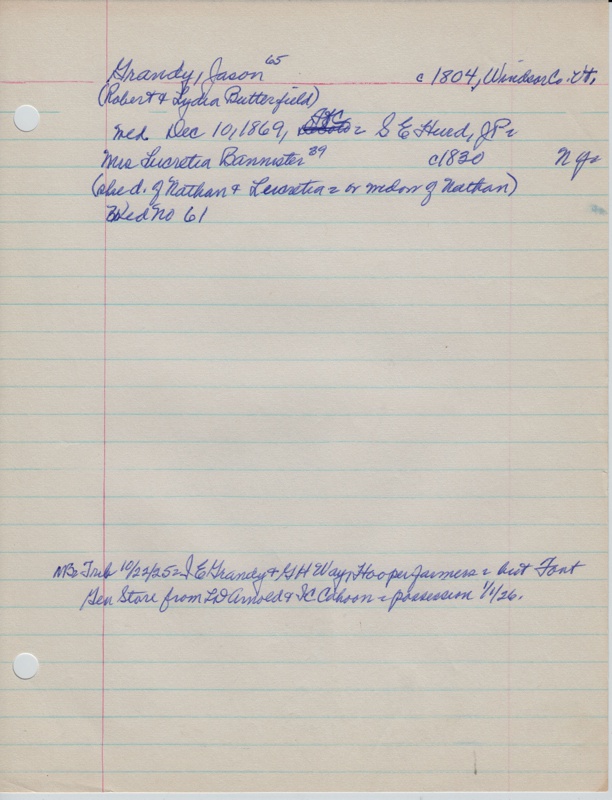 Grandy, Jason 65 c 1804, Windsor Co. Vt.
(Robert & Lydia Butterfield)
med Dec 10, 1869, = S E Hurd, JP =
Mrs Lucretia Bannister 39 c1830 N Y =
(she d. of Nathan & Lucretia = or widow of Nathan)
3ked No 61
NB = Trib 10/22/25 = J E Grandy & G H Way, Hooper farmers = bot Font
Gen Store from L D Arnold & I C Cohoon = possession 1/1/26.